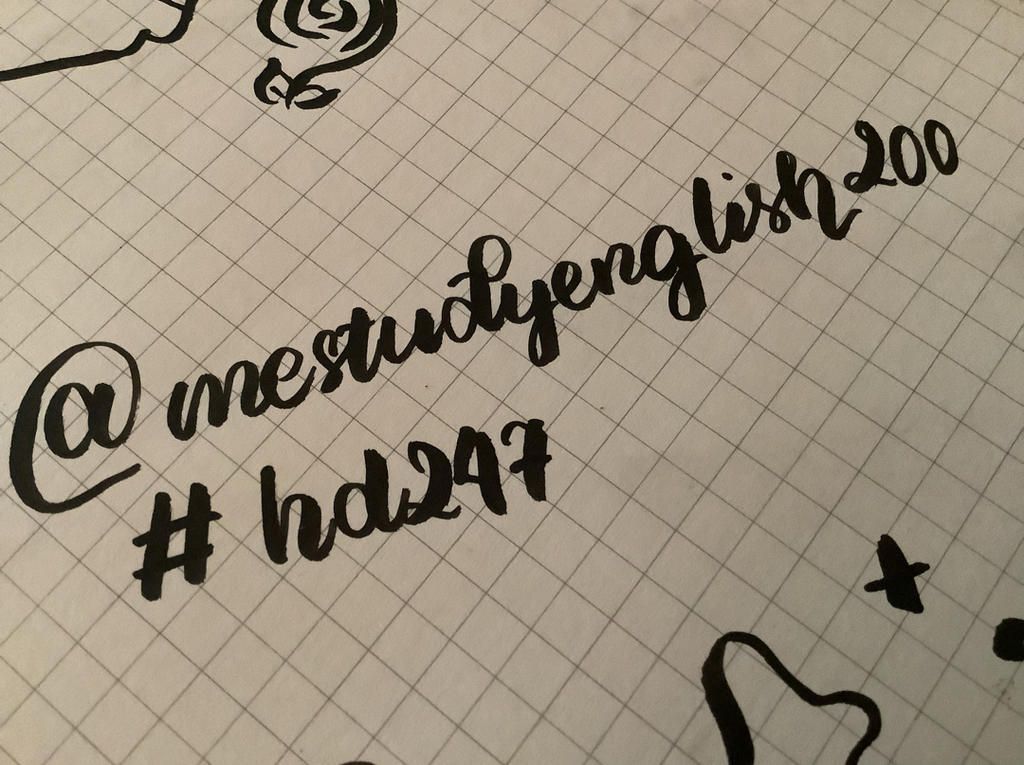 @mestudyenglish200
# hd247